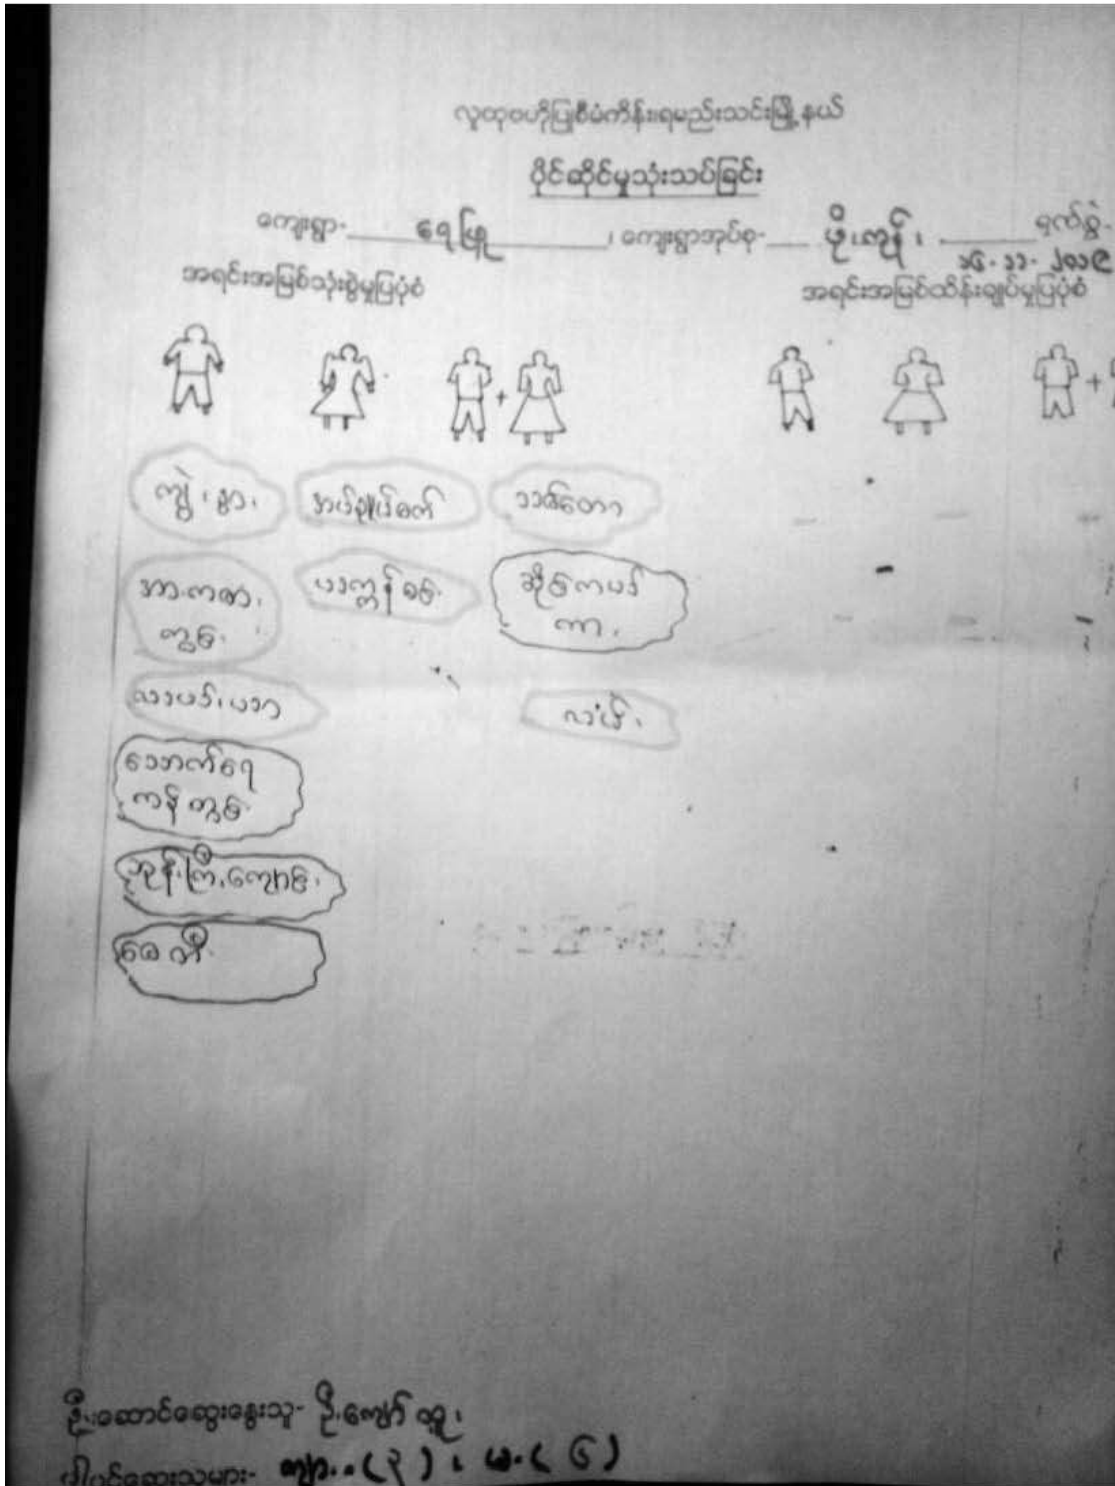 လူထုဗဟိုပြုစီမံကိန်း၊ရမည်းသင်းမြို့နယ်
ပိုင်ဆိုင်မှုသုံးသပ်ခြင်း
ကျေးရွာ- ရေဖြူ ၊ ကျေးရွာအုပ်စု- ဖိုးကုန်း ရက်စွဲ-
၁၆.၁၁.၂၀၁၉
အရင်းအမြစ်သုံးစွဲမှုပြပုံစံ အရင်းအမြစ်ထိန်းချုပ်မှုပြပုံစံ
+ +
ကျွဲ၊ နွား၊ အပ်ချုပ်စက် သစ်တော
အားကစား ပဒက္ကန်စင် ဆိုင်ကယ်
ကွင်း ကား
လယ်၊ ယာ လမ်း
သောက်ရေ
ကန်တွင်း
ဘုန်းကြီးကျောင်း
စေတီ
ဦးဆောင်ဆွေးနွေးသူ- ဦးကျော်ထူး
ပါဝင်ဆွေးသူများ- ကျား..(၃)၊ မ.(၆)